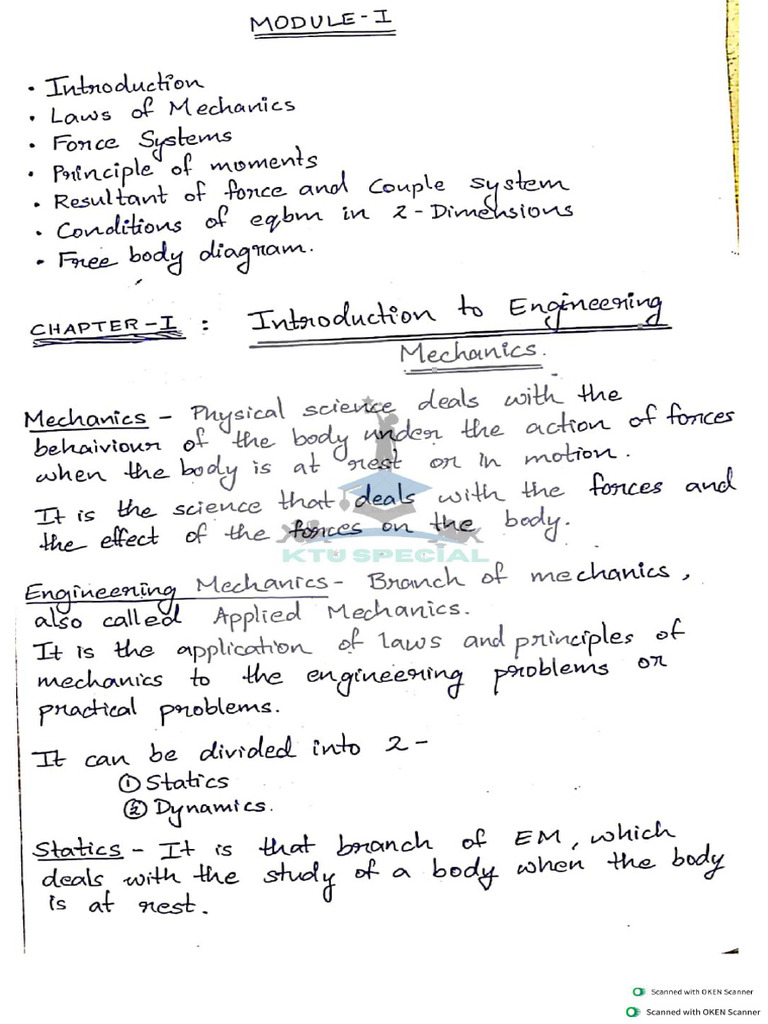 MODULE-I
• Introduction
• Laws of Mechanics
• Force Systems
• Principle of moments
• Resultant of force and Couple system
• Conditions of eqbm in 2-Dimensions
• Free body diagram.
CHAPTER-I : Introduction to Engineering
Mechanics.
Mechanics - Physical science deals with the
behaiviour of the body under the action of forces
when the body is at rest or in motion.
It is the science that deals with the forces and
the effect of the forces on the body.
KTU SPECIAL
Engineering Mechanics - Branch of mechanics,
also called Applied Mechanics.
It is the application of laws and principles of
mechanics to the engineering problems or
practical problems.
It can be divided into 2 -
① Statics
② Dynamics.
Statics - It is that branch of EM, which
deals with the study of a body when the body
is at rest.
Scanned with OKEN Scanner
Scanned with OKEN Scanner